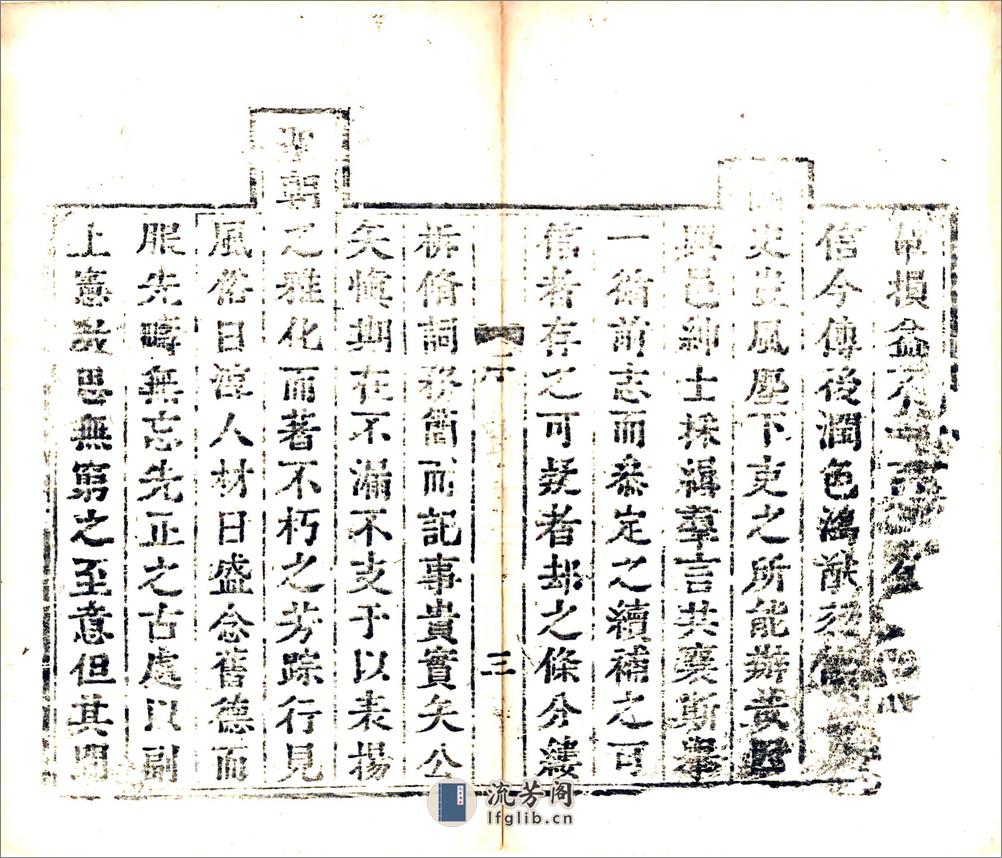 損益
信今傳後潤色鴻猷
國
史豈風塵下吏之所能辦黃
興邑紳士採緝羣言共襄斯舉
一循前志而叅定之續補之可
信者存之可疑者却之條分縷
序
三
析脩詞務簡而記事貴實矣公
矣慎期在不漏不支于以表揚
聖朝
之雅化而著不朽之芳踪行見
風俗日淳人材日盛念舊德而
服先疇無忘先正之古處以副
上憲敎思無窮之至意但其間
流芳阁
lfglib.cn